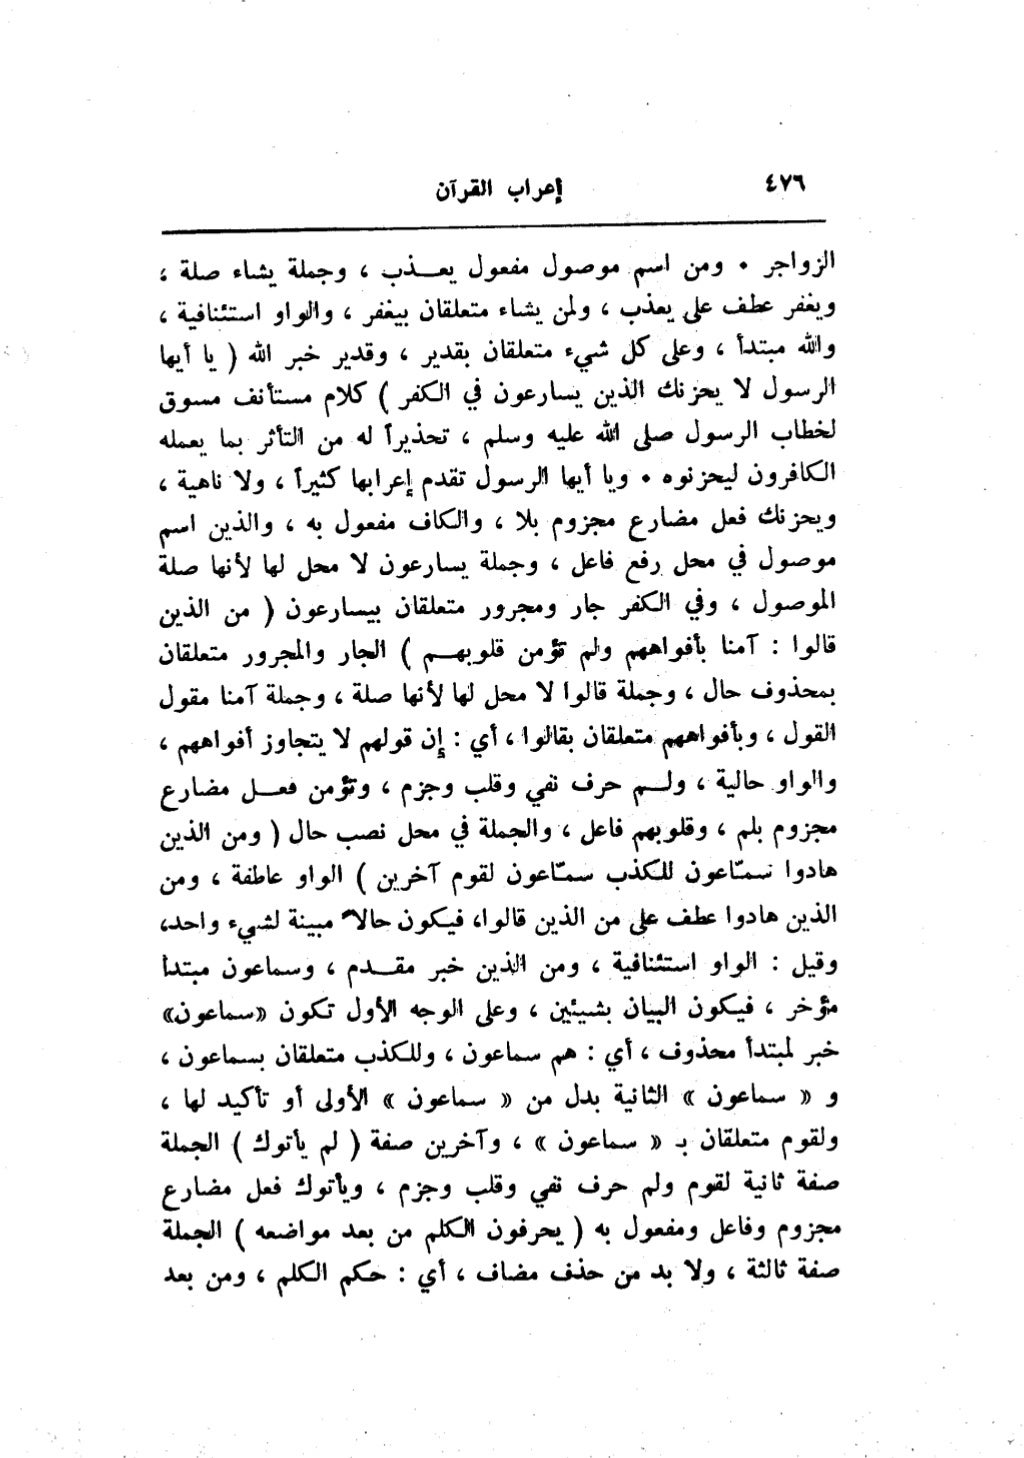 ٤٧٦ إعراب القرآن
الزواجر . ومن اسم موصول مفعول يعذب ، وجملة يشاء صلة ،
ويغفر عطف على يعذب ، ولمن يشاء متعلقان بيغفر ، والواو استئنافية ،
والله مبتدأ ، وعلى كل شيء متعلقان بقدير ، وقدير خبر الله ( يا أيها
الرسول لا يحزنك الذين يسارعون في الكفر ) كلام مستأنف مسوق
لخطاب الرسول صلى الله عليه وسلم ، تحذيراً له من التأثر بما يعمله
الكافرون ليحزنوه . ويا أيها الرسول تقدم إعرابها كثيراً ، ولا ناهية ،
ويحزنك فعل مضارع مجزوم بلا ، والكاف مفعول به ، والذين اسم
موصول في محل رفع فاعل ، وجملة يسارعون لا محل لها لأنها صلة
الموصول ، وفي الكفر جار ومجرور متعلقان بيسارعون ( من الذين
قالوا : آمنا بأفواههم ولم تؤمن قلوبهم ) الجار والمجرور متعلقان
بمحذوف حال ، وجملة قالوا لا محل لها لأنها صلة ، وجملة آمنا مقول
القول ، وبأفواههم متعلقان بقالوا ، أي : إن قولهم لا يتجاوز أفواههم ،
والواو حالية ، ولم حرف نفي وقلب وجزم ، وتؤمن فعل مضارع
مجزوم بلم ، وقلوبهم فاعل ، والجملة في محل نصب حال ( ومن الذين
هادوا سمّاعون للكذب سمّاعون لقوم آخرين ) الواو عاطفة ، ومن
الذين هادوا عطف على من الذين قالوا، فيكون حالاً مبينة لشيء واحد،
وقيل : الواو استئنافية ، ومن الذين خبر مقدم ، وسماعون مبتدأ
مؤخر ، فيكون البيان بشيئين ، وعلى الوجه الأول تكون «سماعون»
خبر لمبتدأ محذوف ، أي : هم سماعون ، وللكذب متعلقان بسماعون ،
و « سماعون » الثانية بدل من « سماعون » الأولى أو تأكيد لها ،
ولقوم متعلقان بـ « سماعون » ، وآخرين صفة ( لم يأتوك ) الجملة
صفة ثانية لقوم ولم حرف نفي وقلب وجزم ، ويأتوك فعل مضارع
مجزوم وفاعل ومفعول به ( يحرفون الكلم من بعد مواضعه ) الجملة
صفة ثالثة ، ولا بد من حذف مضاف ، أي : حكم الكلم ، ومن بعد